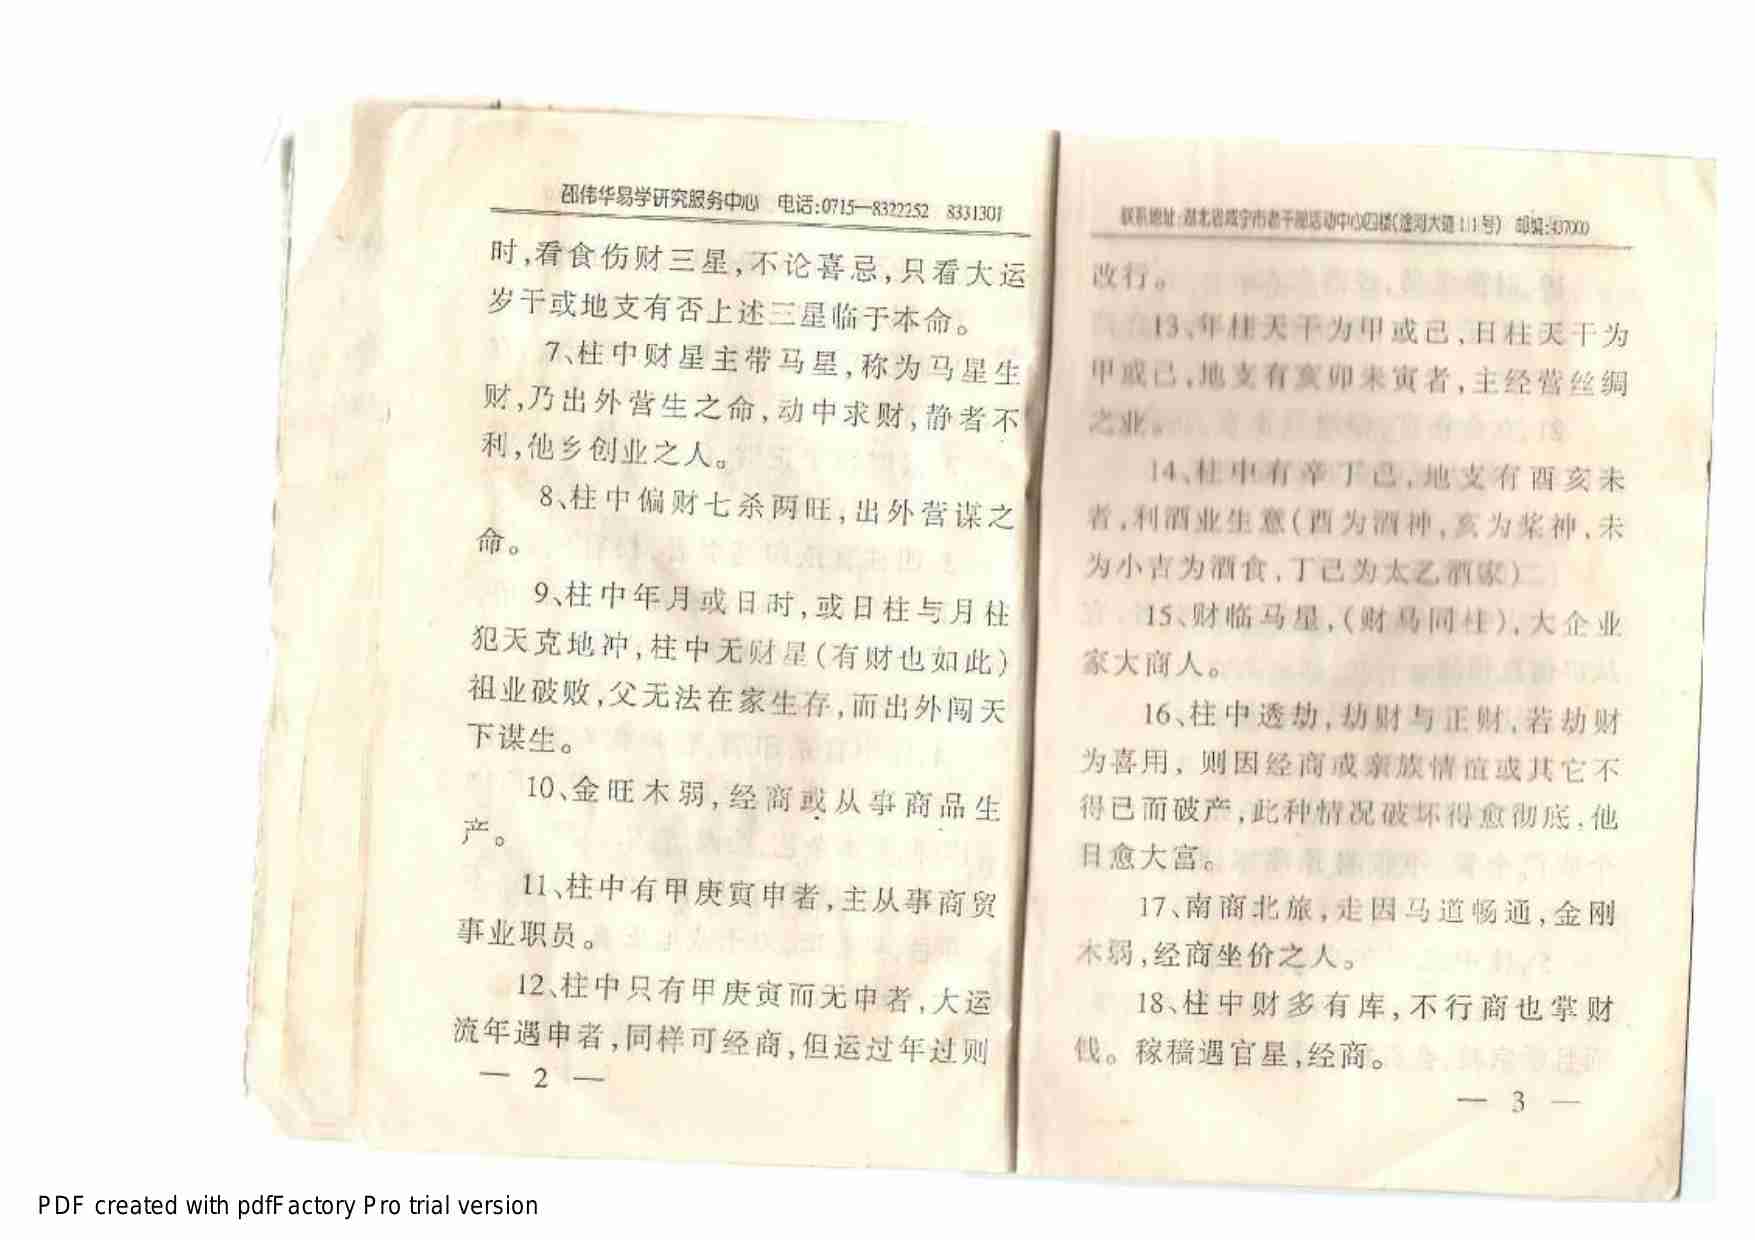 邵伟华易学研究服务中心 电话:0715—8322252 8331301
时,看食伤财三星,不论喜忌,只看大运
岁干或地支有否上述三星临于本命。
7、柱中财星主带马星,称为马星生
财,乃出外营生之命,动中求财,静者不
利,他乡创业之人。
8、柱中偏财七杀两旺,出外营谋之
命。
9、柱中年月或日时,或日柱与月柱
犯天克地冲,柱中无财星(有财也如此)
祖业破败,父无法在家生存,而出外闯天
下谋生。
10、金旺木弱,经商或从事商品生
产。
11、柱中有甲庚寅申者,主从事商贸
事业职员。
12、柱中只有甲庚寅而无申者,大运
流年遇申者,同样可经商,但运过年过则
— 2 —
联系地址:湖北省咸宁市老干部活动中心四楼(淦河大道111号) 邮编:437000
改行。
13、年柱天干为甲或己,日柱天干为
甲或己,地支有亥卯未寅者,主经营丝绸
之业。
14、柱中有辛丁己,地支有酉亥未
者,利酒业生意(酉为酒神,亥为浆神,未
为小吉为酒食,丁己为太乙酒家)
15、财临马星,(财马同柱),大企业
家大商人。
16、柱中透劫,劫财与正财,若劫财
为喜用,则因经商或亲族情谊或其它不
得已而破产,此种情况破坏得愈彻底,他
日愈大富。
17、南商北旅,走因马道畅通,金刚
木弱,经商坐价之人。
18、柱中财多有库,不行商也掌财
伐。稼穑遇官星,经商。
— 3 —
PDF created with pdfFactory Pro trial version